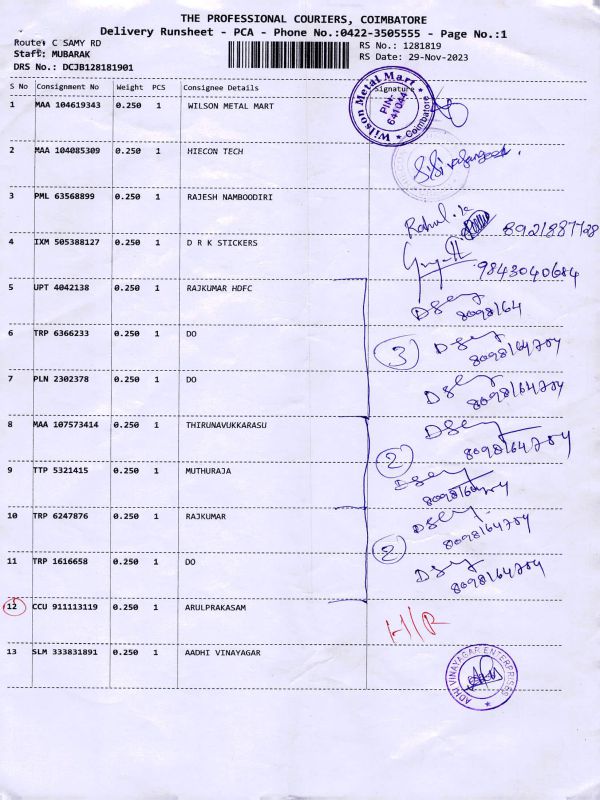 THE PROFESSIONAL COURIERS, COIMBATORE
Delivery Runsheet - PCA - Phone No.:0422-3505555 - Page No.:1
Route: C SAMY RD RS No.: 1281819
Staff: MUBARAK RS Date: 29-Nov-2023
DRS No.: DCJB128181901
S No Consignment No Weight PCS Consignee Details Signature
1 MAA 104619343 0.250 1 WILSON METAL MART
Wilson Metal Mart Coimbatore PIN- 641044
2 MAA 104085309 0.250 1 HIECON TECH
3 PML 63568899 0.250 1 RAJESH NAMBOODIRI Rahul.k
4 IXM 505388127 0.250 1 D R K STICKERS 9843040684
5 UPT 4042138 0.250 1 RAJKUMAR HDFC 8098164
6 TRP 6366233 0.250 1 DO 3 8098164704
7 PLN 2302378 0.250 1 DO 8098164704
8 MAA 107573414 0.250 1 THIRUNAVUKKARASU 8098164704
9 TTP 5321415 0.250 1 MUTHURAJA 2 8098164704
10 TRP 6247876 0.250 1 RAJKUMAR 8098164704
11 TRP 1616658 0.250 1 DO 2 8098164704
12 CCU 911113119 0.250 1 ARULPRAKASAM H/R
13 SLM 333831891 0.250 1 AADHI VINAYAGAR
ADHI VINAYAGAR ENTERPRISES